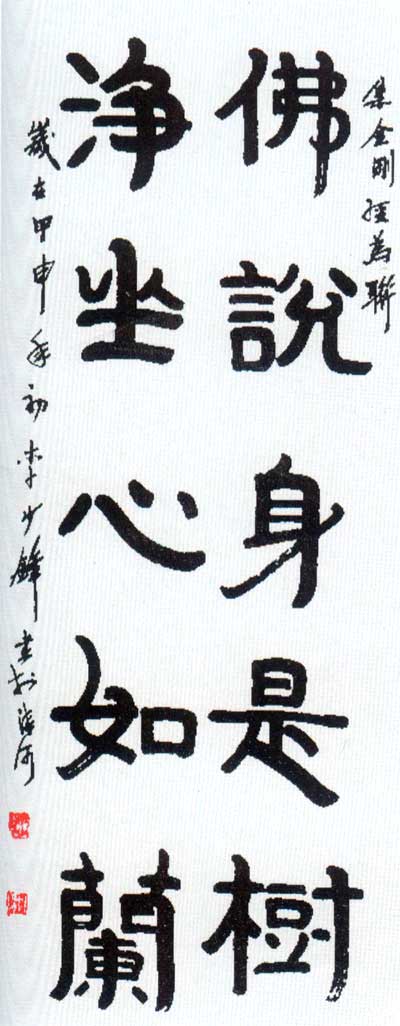 集金剛經為聯
佛說身是樹
淨坐心如蘭
歲在甲申年初李少鋒書於